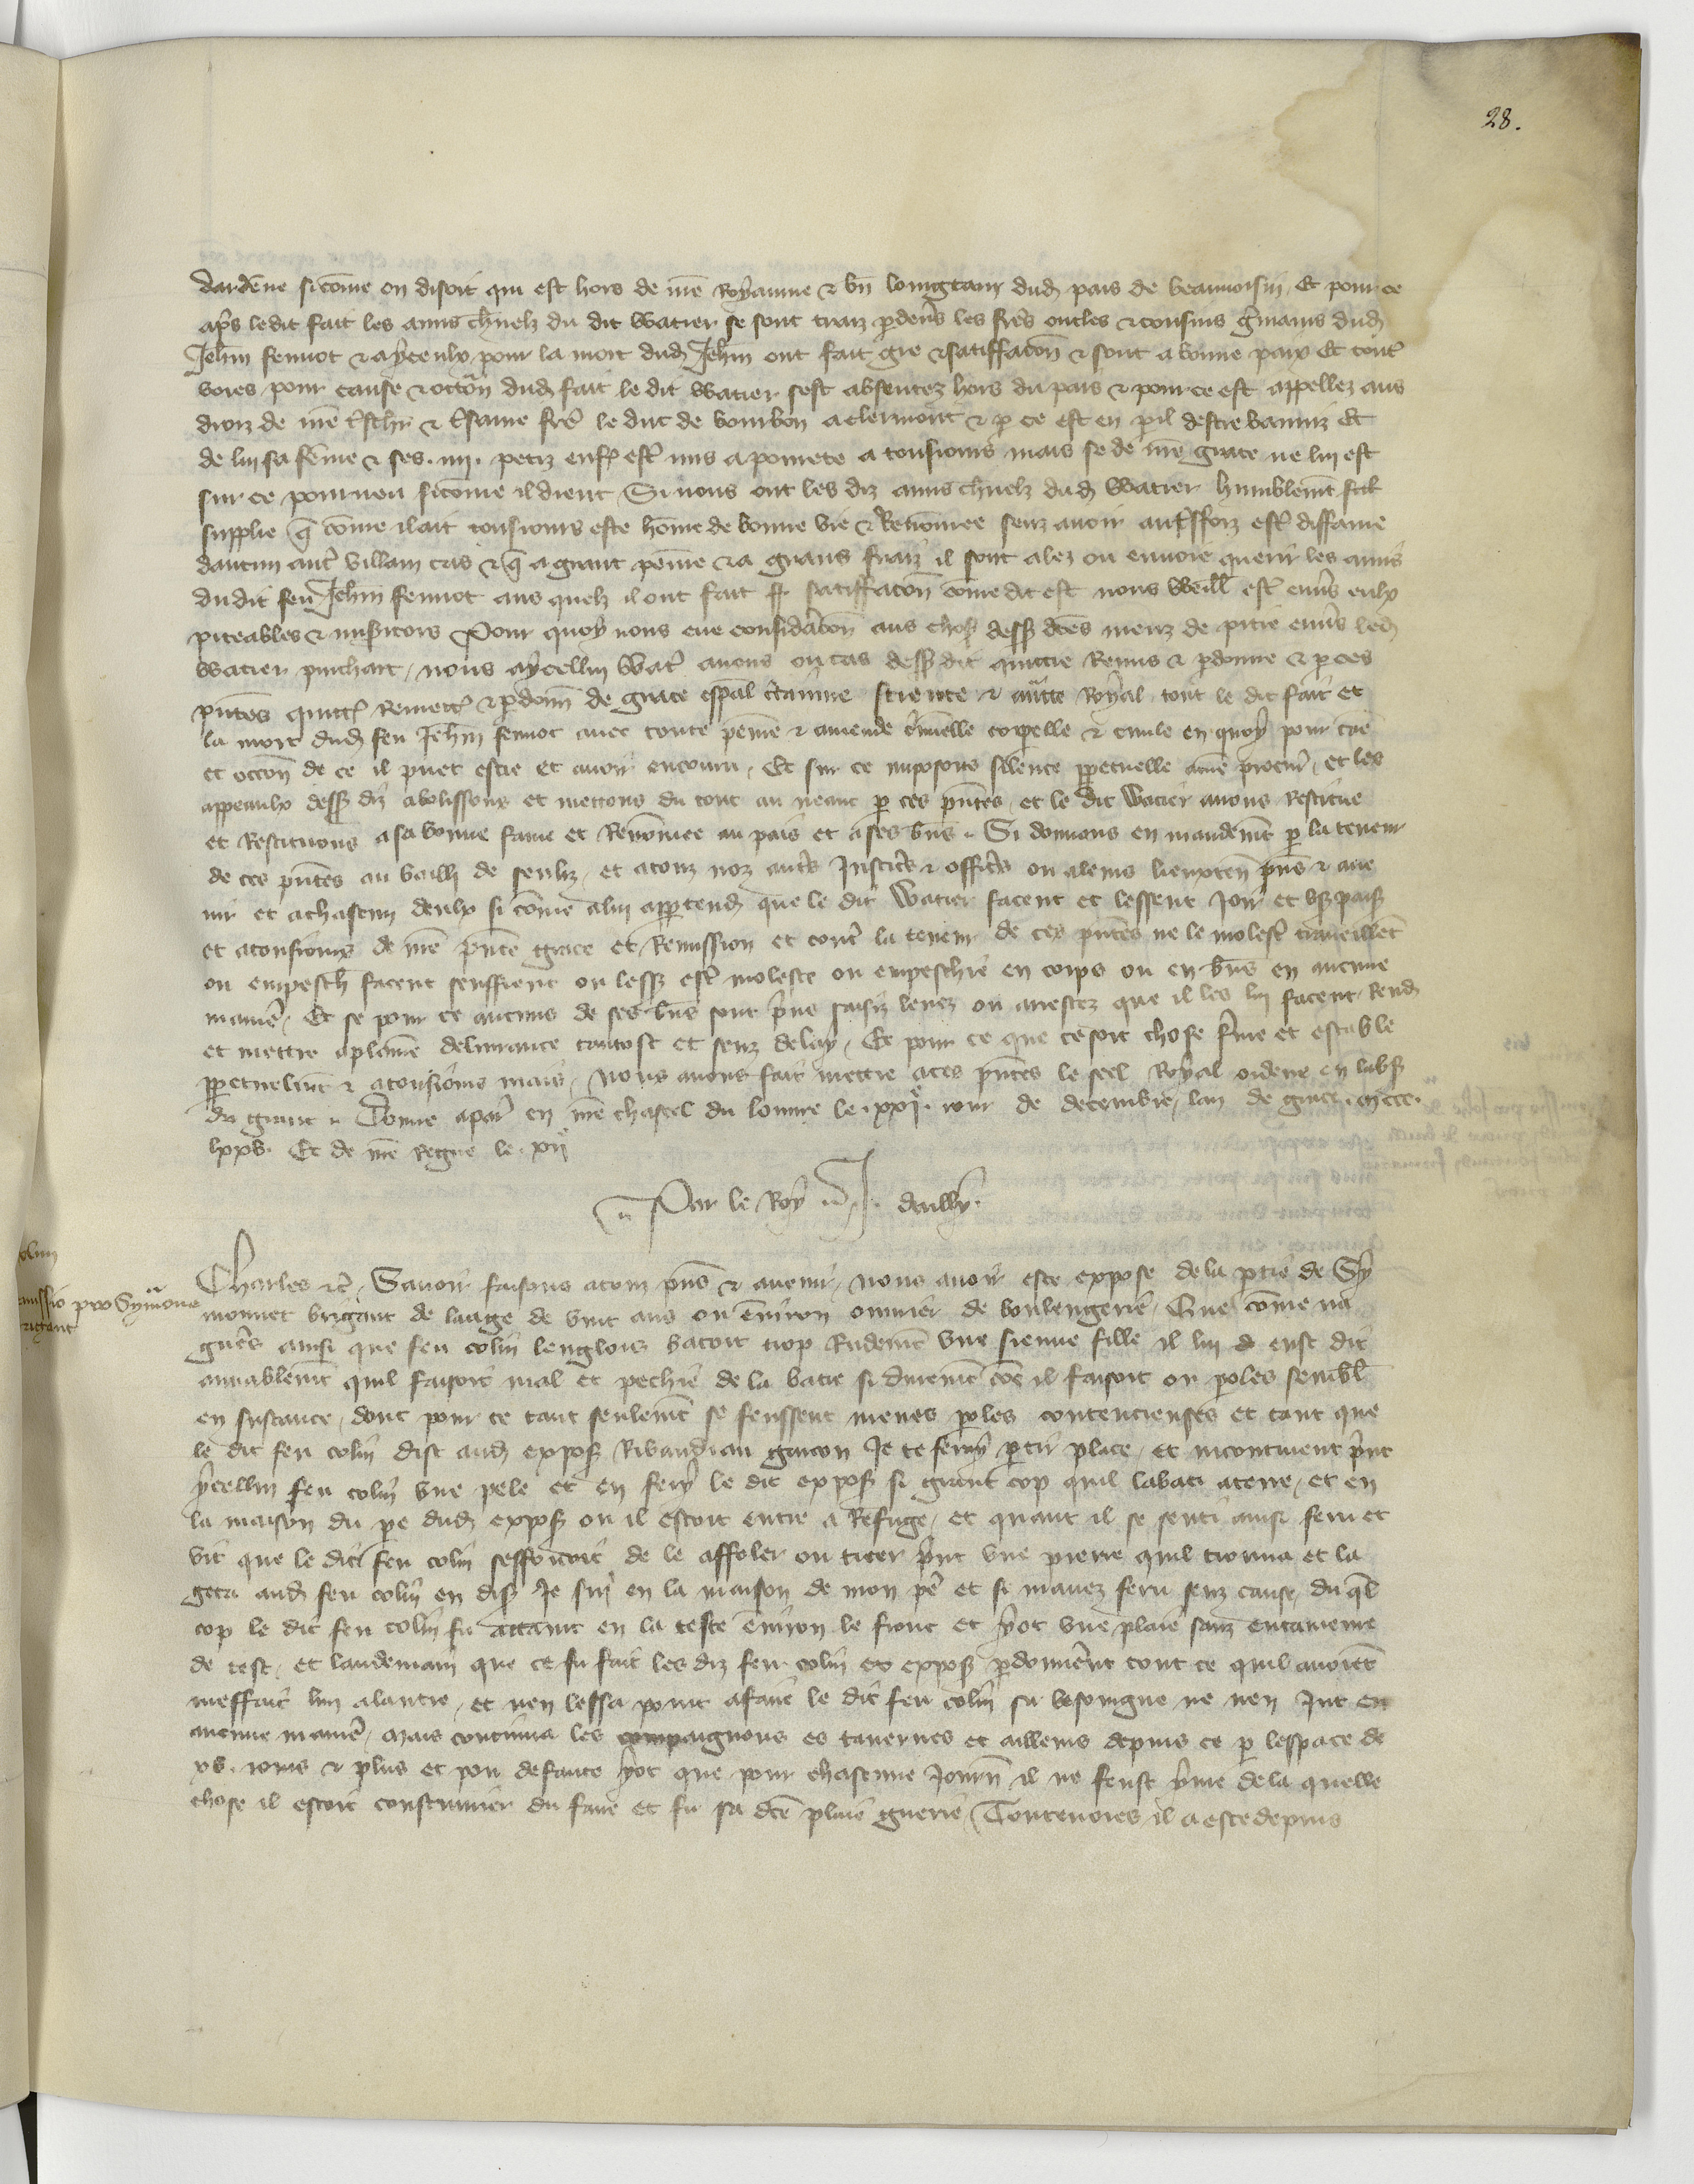 28.
dardēne sicōme on disoit qui est hors de nrē Royaume & bn̄ loingtain dud pais de beauvoisin. Et pour ce
apr̄s ledit fait les amis charnelz du dit Watier se sont traiz p devs les frēs oncles & cousins gmains dud
Jehan fennot & a yceulx pour la mort dud Jehan ont fait gre & satiffacōn & sont a bonne paix Et toutes
voies pour cause & occōn dud fait le dit Watier sest absentez hors du pais & pour ce est appellez aus
droiz de nrē treschr & tresame frē le duc de bourbon a clermont & p ce est en pil destre banniz Et
de lui sa fēme & ses .iiii. petiz enf estre mis a povrete a tousiours mais se de nrē grace ne lui est
sur ce pourveu sicōme il dient Si nous ont les diz amis charnelz dud Watier humblemt fait
supplie q cōme il ait tousiours este hōme de bonne vie & Renōmee senz avoir autreffoiz este diffame
daucun autre villain cas & q a grant peine & a grans fraiz il sont alez ou envoie querir les amis
du dit feu Jehan fennot aus quelz il ont fait satiffacōn cōme dit est nous veill estre envs eulx
piteables & misicors Pour quoy nous eue consideracōn aus chos dess dcēs meuz de pitie envs led
Watier pinchart, nous a ycellui Wat avons ou cas dess dit quittie Remis & pdonne & p ces
pn̄tes quitt Remett & pdonn de grace espāl certaine science & auctte Royal tout le dit fait et
la mort dud feu Jehan fennot avec toute peine & amende criminelle corpelle & civile en quoy pour cāe
et occōn de ce il puet estre et avoir encouru, Et sur ce imposons silence ppetuelle a nrē procur, et les
appeaulx dess diz abolissons et mettons du tout au neant p ces pn̄tes, et le dit Watier avons Restitue
et Restituons a sa bonne fame et Renōmee au pais et a ses bn̄s. Si donnons en mandemt p la teneur
de ces pn̄tes au bailli de senliz, et a touz noz autrs Justicrs & officrs ou a leurs lieuxten pn̄s & ave
nir et a chascun deulx si cōme a lui appartend que le dit Watier facent et lessent Joir et us paiss
et a tousiours de nrē pn̄te grace et Remission et contre la teneur de ces pn̄tes ne le molest travaillent
ou empesch facent seuffrent ou less estre moleste ou empeschie en corps ou en bn̄s en aucune
manie, Et se pour ce aucuns de ses bn̄s sont prins saisiz levez ou arrestez que il les lui facent Rend
et mettre a plaine delivrance tantost et senz delay, Et pour ce que ce soit chose ferme et estable
ppetuelmt & a tousiours mais, nous avons fait mettre a ces pn̄tes le seel Royal ordene en labs
du grant. Donne a par en nrē chastel du louvre le .xxie. iour de decembre, lan de grace .mccc.
lxxv. Et de nrē Regne le .xiie
Par le Roy. J. dailly.
Charles &c. Savoir faisons a touz pn̄s & avenir, nous avoir este expose de la ptie de Sy
monnet brigant de laage de vint ans ou environ ouvrier de boulengerie, Que cōme na
gues ainsi que feu colin lenglois batoit trop Rudemt une sienne fille il lui eust dit
amiablemt quil faisoit mal et pechie de la batre si durement cōe il faisoit ou poles sembl
en sustance, dont pour ce tant seulemt se feussent menes poles contencieuses et tant que
le dit feu colin dist aud expos Ribaudiau garcon Je te feray ptir place, et incontinent print
ycellui feu colin une pele et en fery le dit expos si grant cop quil labati a terre, et en
la maison du pe dud expos ou il estoit entre a Refuge, et quant il se senti ainsi feru et
vit que le dit feu colin sefforcoit de le affoler ou tuer print une pierre quil trouva et la
getta aud feu colin en dis Je sui en la maison de mon pē et si mavez feru senz cause, du ql
cop le dit feu colin fu attaint en la teste environ le front et y ot une plaie sanz entameure
de test, et landemain que ce fu fait les diz feu colin et expos pdonnerent tout ce quil avoient
meffait lun a lautre, et nen lessa point a faire le dit feu colin sa besoingne ne nen Jut en
aucune manie, Mais continua les compaignons es tavernes et ailleurs depuis ce p lespace de
xv. iours & plus et pou defaute y ot que pour chascune Journ il ne feust yvre de la quelle
chose il estoit coustumier du faire et fu sa dcē plaie guerie, Toutevoies il a este depuis
missio pro Symone
brigant